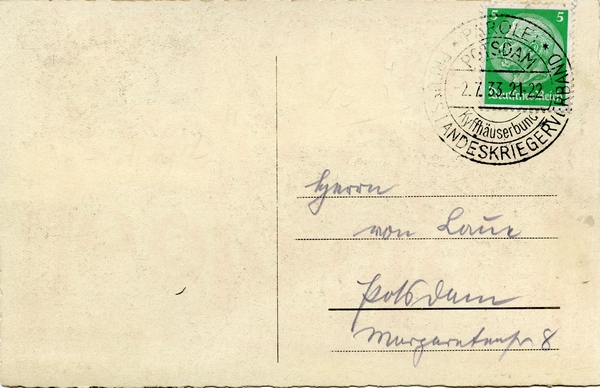 5 5
* PAROLE: *
POTSDAM
2.7.33.21-22
Kyffhäuserbund
LANDESKRIEGERVERBAND
Herrn
von Laue
Potsdam
Margaretenstr 8